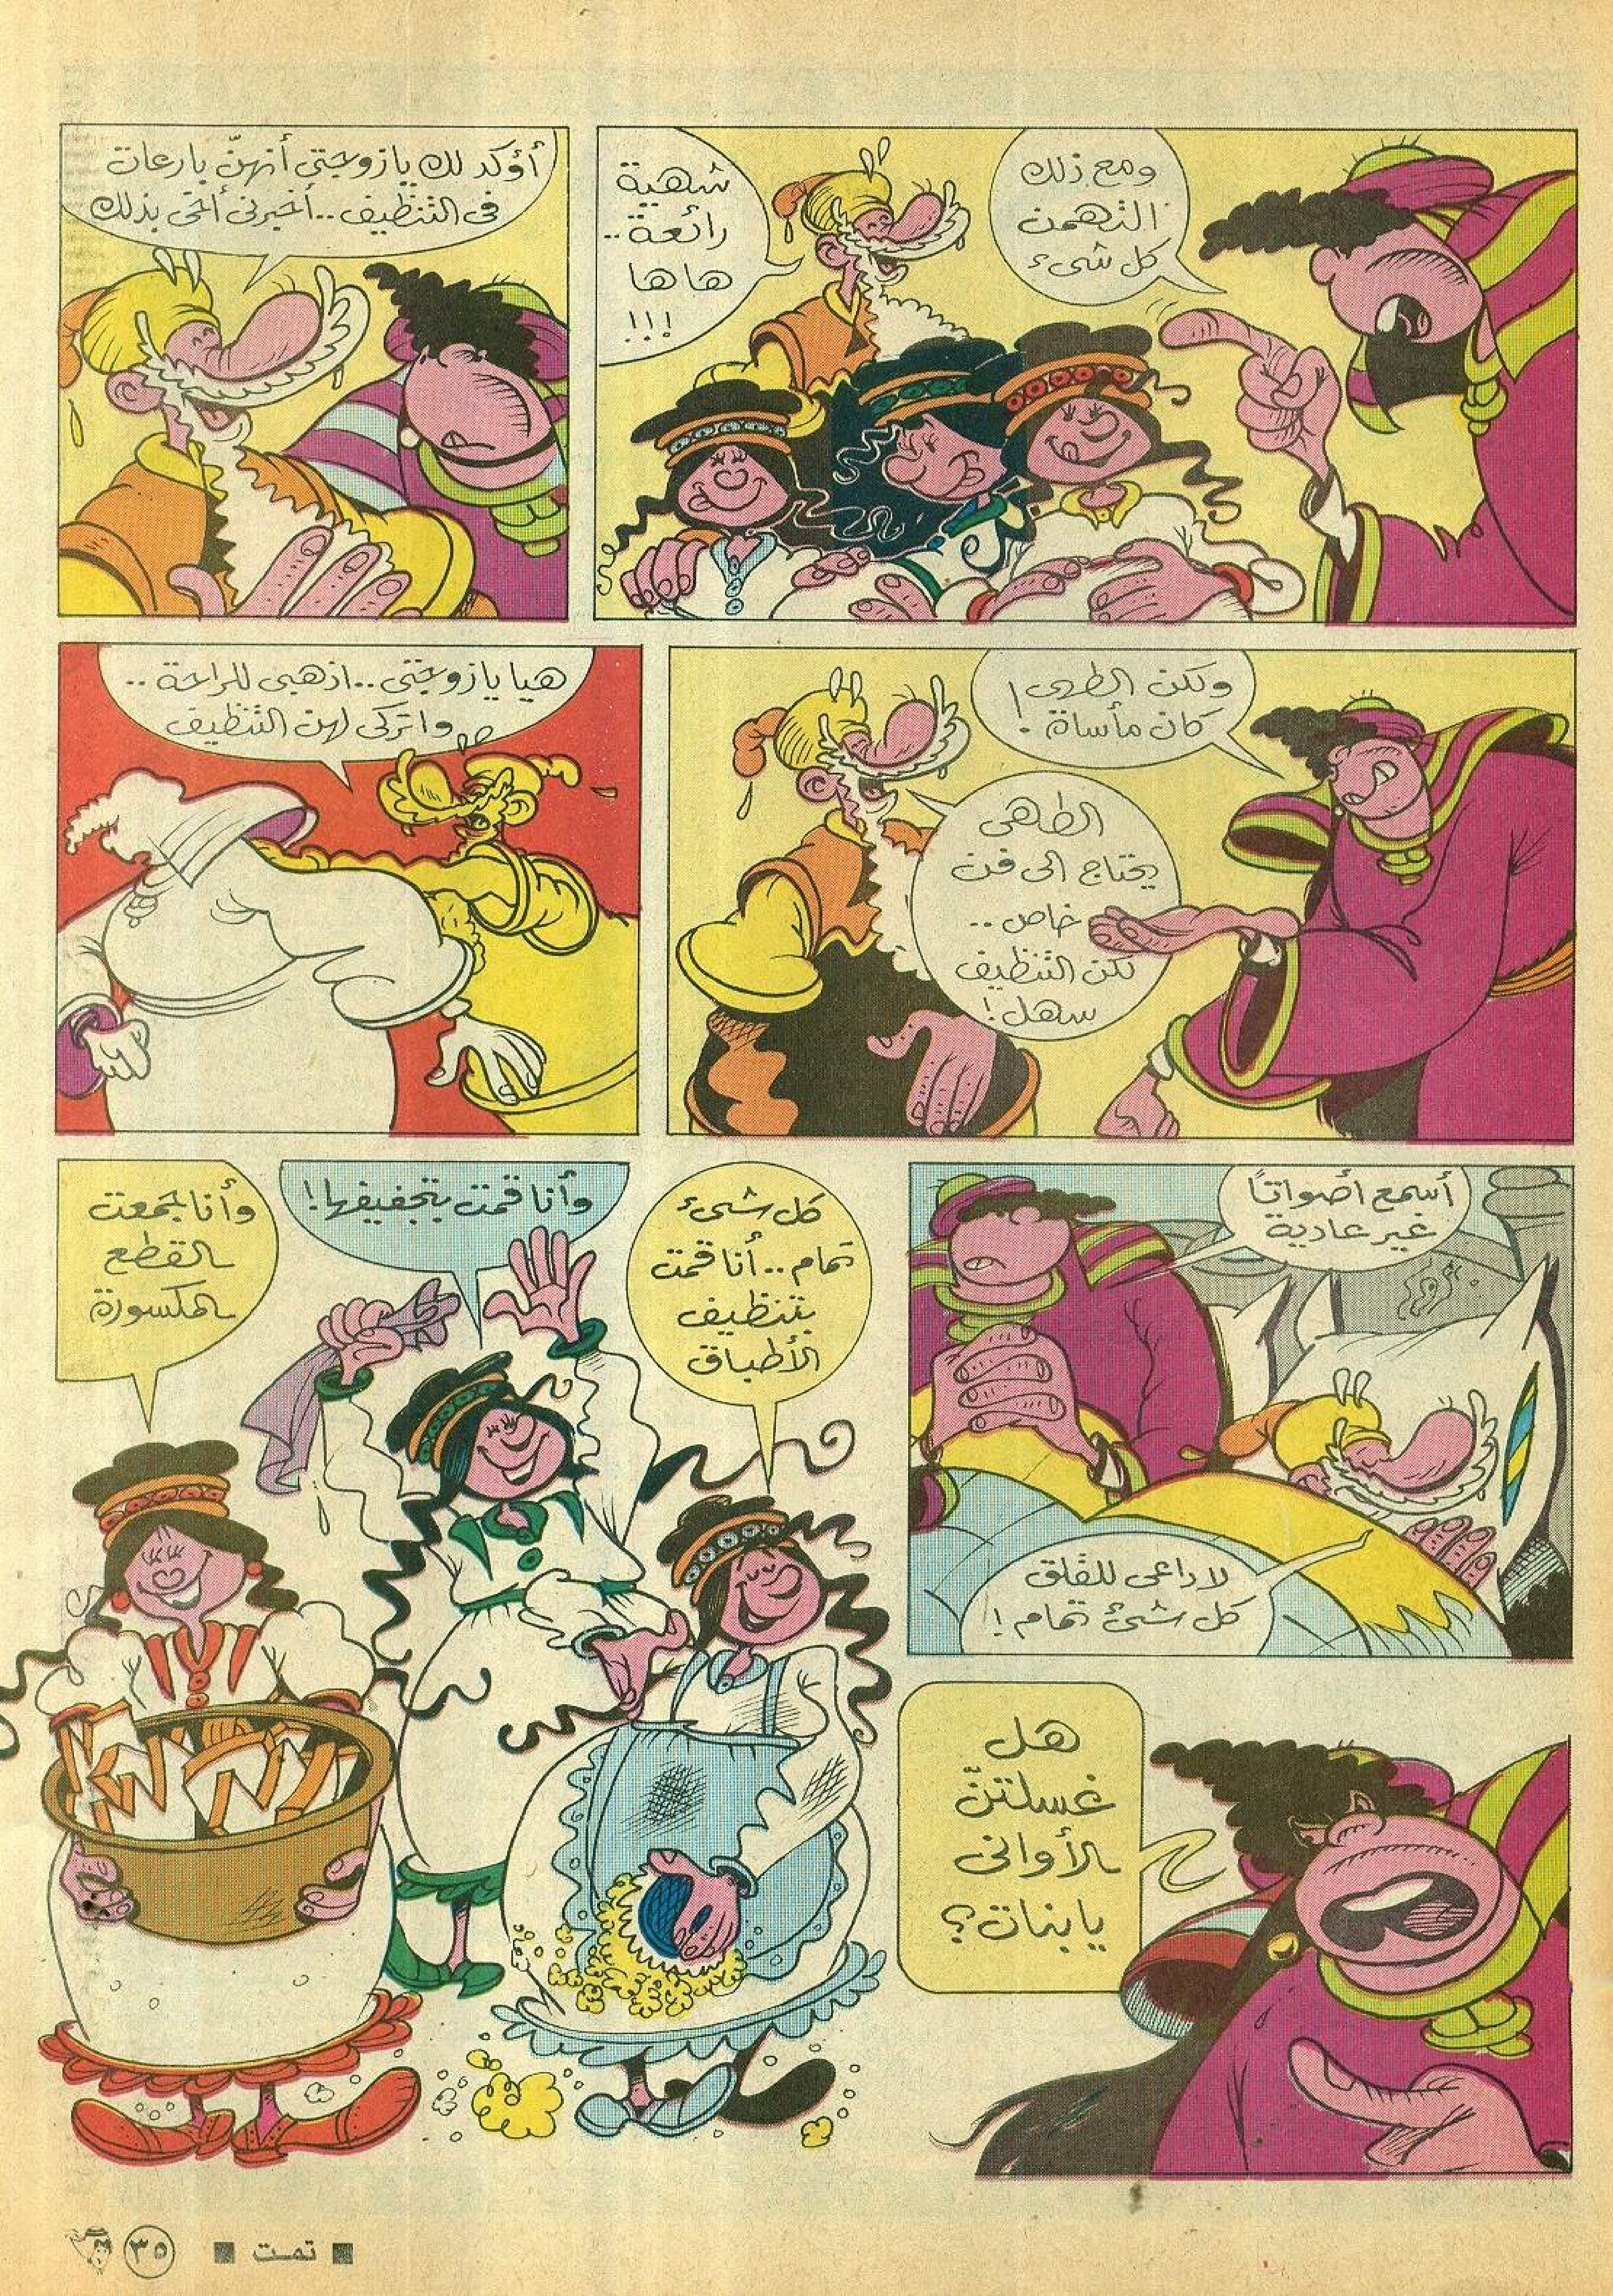 ومع ذلك
التهمن
كل شىء
شهية
رائعة..
هاها
!!!
أؤكد لك يا زوجتى أنهنّ بارعات
فى التنظيف.. أخبرنى أخى بذلك
ولكن الطهى
كان مأساة!
الطهى
يحتاج الى فن
خاص..
لكن التنظيف
سهل!
هيا يا زوجتى.. اذهبى للراحة..
واتركى لهن التنظيف
أسمع أصواتاً
غير عادية
لا داعى للقلق
كل شىء تمام!!
هل
غسلتنّ
الأوانى
يا بنات؟
كل شىء
تمام.. أنا قمت
بتنظيف
الأطباق
وأنا قمت بتجفيفها!
وأنا جمعت
القطع
المكسورة
■ تمت ■
٣٥